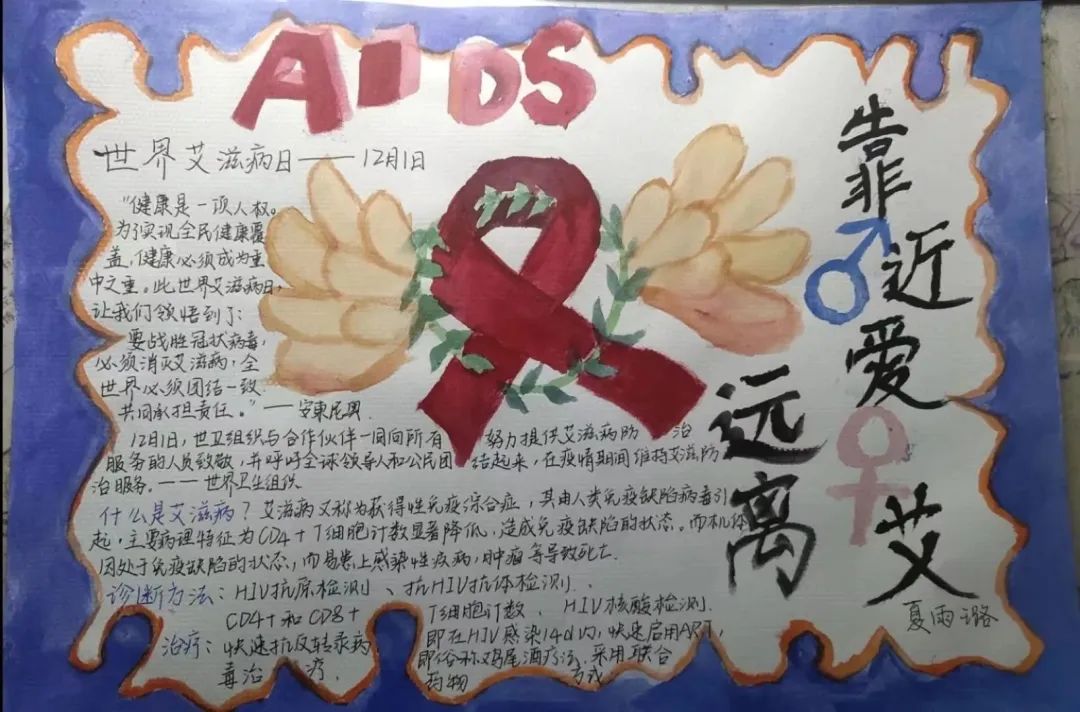 AIDS
世界艾滋病日——12月1日
"健康是一项人权。
为了实现全民健康覆
盖,健康必须成为重
中之重。此世界艾滋病日,
让我们领悟到了:
要战胜冠状病毒,
必须消灭艾滋病,全
世界必须团结一致
共同承担责任。"——安东尼奥
12月1日,世卫组织与合作伙伴一同向所有努力提供艾滋病防治
服务的人员致敬,并呼吁全球领导人和公民团结起来,在疫情期间维持艾滋防
治服务。——世界卫生组织
什么是艾滋病?艾滋病又称为获得性免疫综合症,其由人类免疫缺陷病毒引
起,主要病理特征为CD4+T细胞计数显著降低,造成免疫缺陷的状态。而机体
因处于免疫缺陷的状态,而易患上感染性疾病,肿瘤等导致死亡.
诊断方法:HIV抗原检测、抗HIV抗体检测、
CD4+和CD8+T细胞计数、HIV核酸检测.
治疗:快速抗反转录病即在HIV感染14d内,快速启用ART,
毒治疗,即俗称鸡尾酒疗法,采用联合
药物方式
告非
近
爱
艾
远
离
夏雨璐